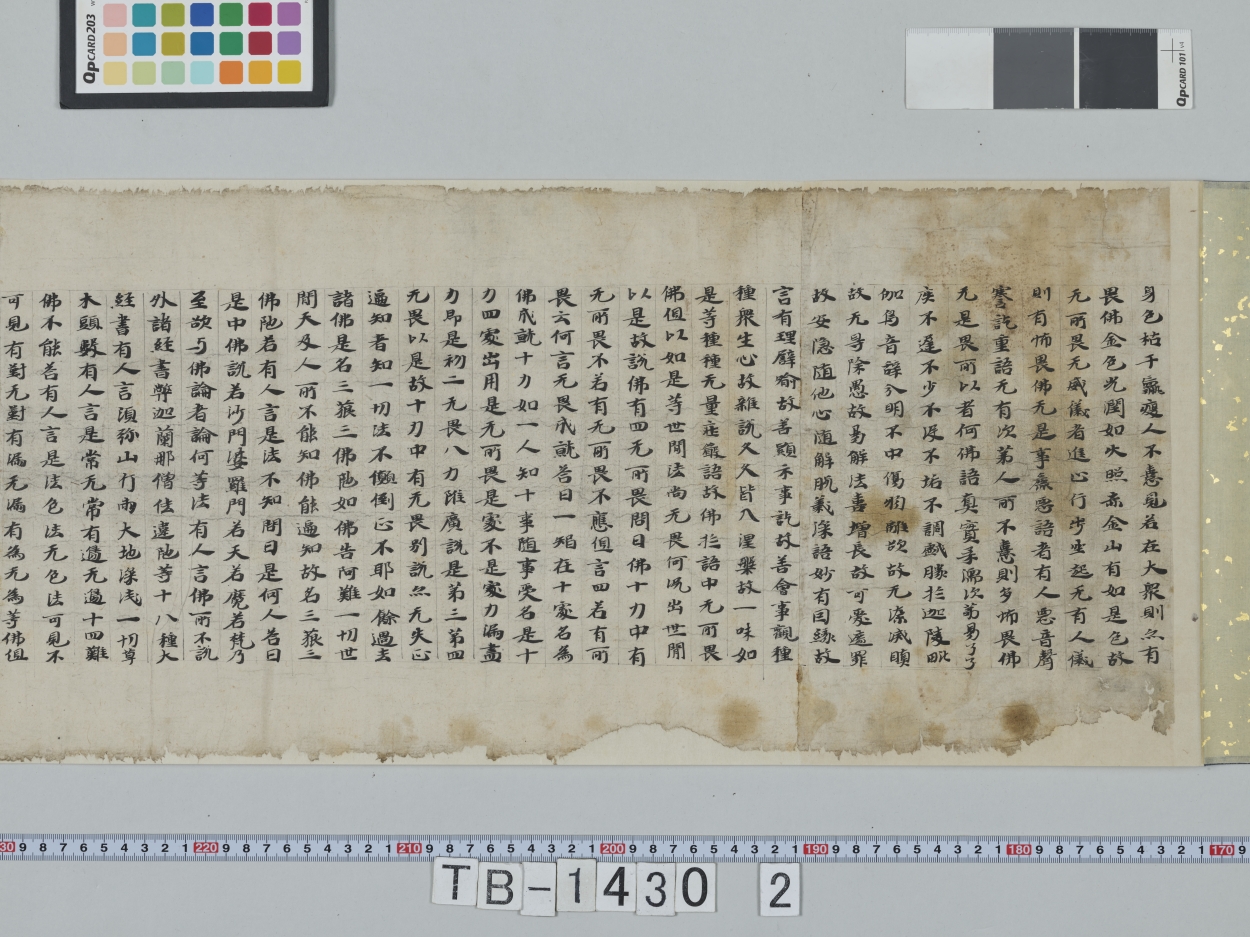 身色枯干羸瘦人不憙見若在大衆則㷊有
畏佛金色光潤如火照赤金山有如是色故
无所畏无威儀者進心行步坐起无有人儀
則有怖畏佛无是事麁惡語者有人惡音聲
蹇訖重語无有次第人所不憙則多怖畏佛
无是畏所以者何佛語真實柔濡次第易了
疾不遲不少不没不垢不調戲勝於迦陵毗
伽鳥音辞分明不中傷物離欲故无染滅瞋
故无㝵除愚故易解法喜增長故可愛遮罪
故安隱随他心随解脱義深語妙有因緣故
言有理辟喻故善顯示事訖故善會事觀種
種衆生心故雜説久久皆入涅槃故一味如
是等種種无量庄嚴語故佛於語中无所畏
佛但以如是等世閒法尚无畏何况出世閒
以是故説佛有四无所畏問曰佛十力中有
无所畏不若有无所畏不應但言四若有所
畏云何言无畏成就荅曰一智在十處名為
佛成就十力如一人知十事随事受名是十
力四處出用是无所畏是處不是處力漏盡
力即是初二无畏八力雖廣説是第三第四
无畏以是故十力中有无畏别説㷊无失正
遍知者知一切法不顛倒正不耶如餘過去
諸佛是名三藐三佛陁如佛告阿難一切世
閒天及人所不能知佛能遍知故名三藐三
佛陁若有人言是法不知問曰是何人荅曰
是中佛説若沙門婆羅門若天若魔若梵乃
至欲与佛論者論何等法有人言佛所不説
外諸經書弊迦蘭那僧佉違陁等十八種大
經書有人言須弥山斤兩大地深浅一切草
木頭數有人言是常无常有邊无邊十四難
佛不能荅有人言是法色法无色法可見不
可見有對无對有漏无漏有為无為等佛但
QpCARD 203
QpCARD 101 v4
TB-1430 2